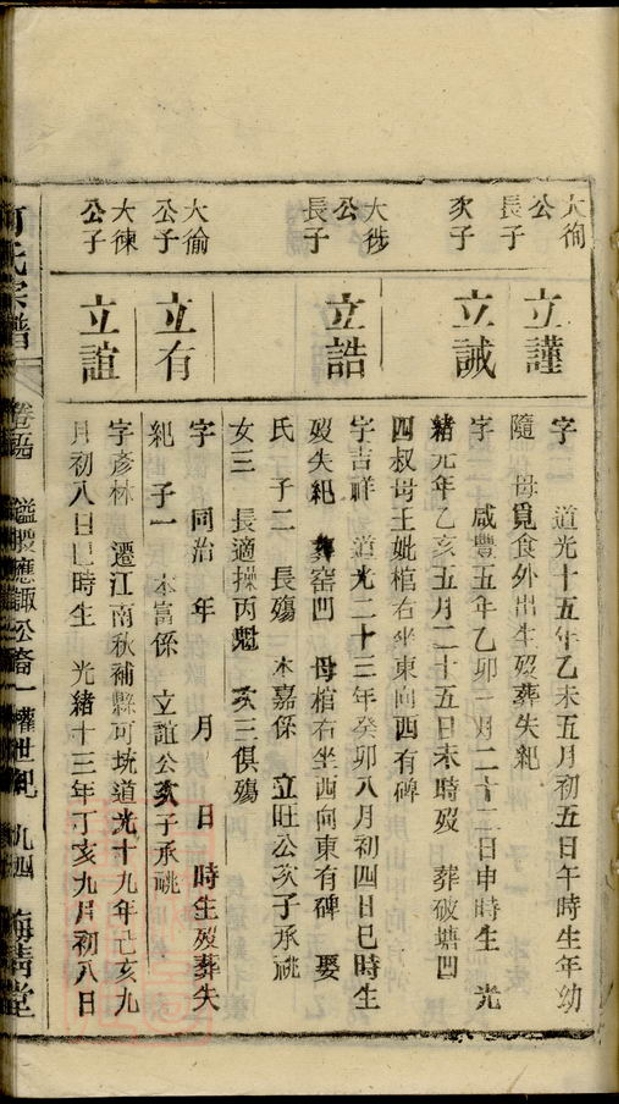 大徇
公
長子
立謹
字　道光十五年乙未五月初五日午時生年幼
隨　母覓食外出生歿葬失紀
次子
立誡
字　咸豐五年乙卯二月二十二日申時生　光
緒元年乙亥五月二十五日未時歿　葬破塘凹
四叔母王妣棺右坐東向西有碑
大徏
公
長子
立誥
字吉祥　道光二十三年癸卯八月初四日巳時生
歿失紀　葬窑凹　母棺右坐西向東有碑　娶
氏　子二　長殤　本嘉係　立旺公次子承祧
女三　長適操丙魁　次三俱殤
大偷
公子
立有
字　同治　年　月　日　時生歿葬失
紀　子一　本富係　立誼公次子承祧
大徚
公子
立誼
字彥林　遷江南秋補縣可坑道光十九年己亥九
月初八日巳時生　光緒十三年丁亥九月初八日
何氏宗譜
卷
鎰股應諏公裔一權世紀
九四